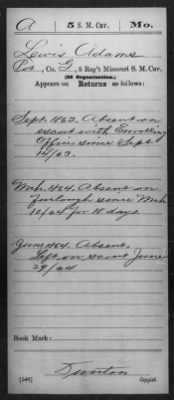 A | 5 S. M. Cav. | Mo.
Lewis Adams
Pvt., Co. G, 5 Reg't Missouri S. M. Cav.
(2d Organization.)
Appears on Returns as follows:
Sept. 1863. Absent on
escort with Enrolling
Officer since Sept.
14/63.
Mch. 1864. Absent on
furlough since Mch
10/64 for 11 days.
June 1864. Absent.
Left on scout June
29/64
Book Mark:
Dunton
(546) Copyist.